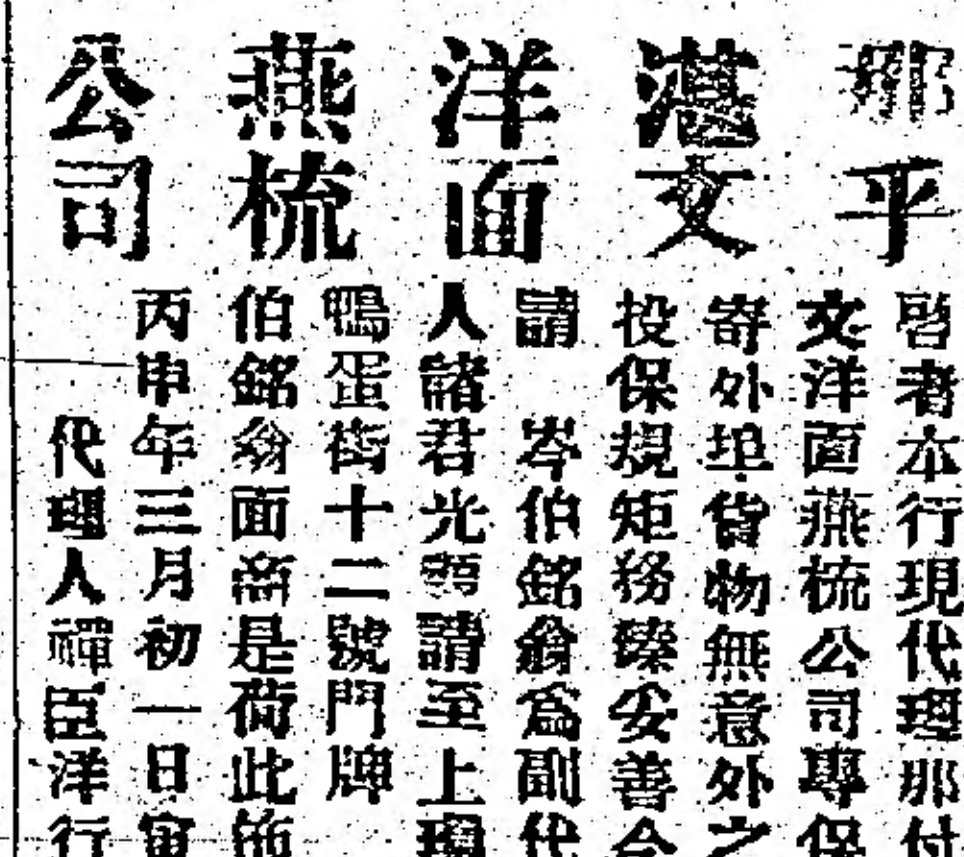 那乎
港文
洋面
燕梳
公司
啓者本行現代理那付
文洋面燕梳公司專保
寄外埠貨物無意外之
投保規矩務臻妥善今
請 岑伯銘翁爲副代
人諸君光顧請至上環
鴨蛋街十二號門牌
伯銘翁面商是荷此佈
丙申年三月初一日寅
代理人禪臣洋行